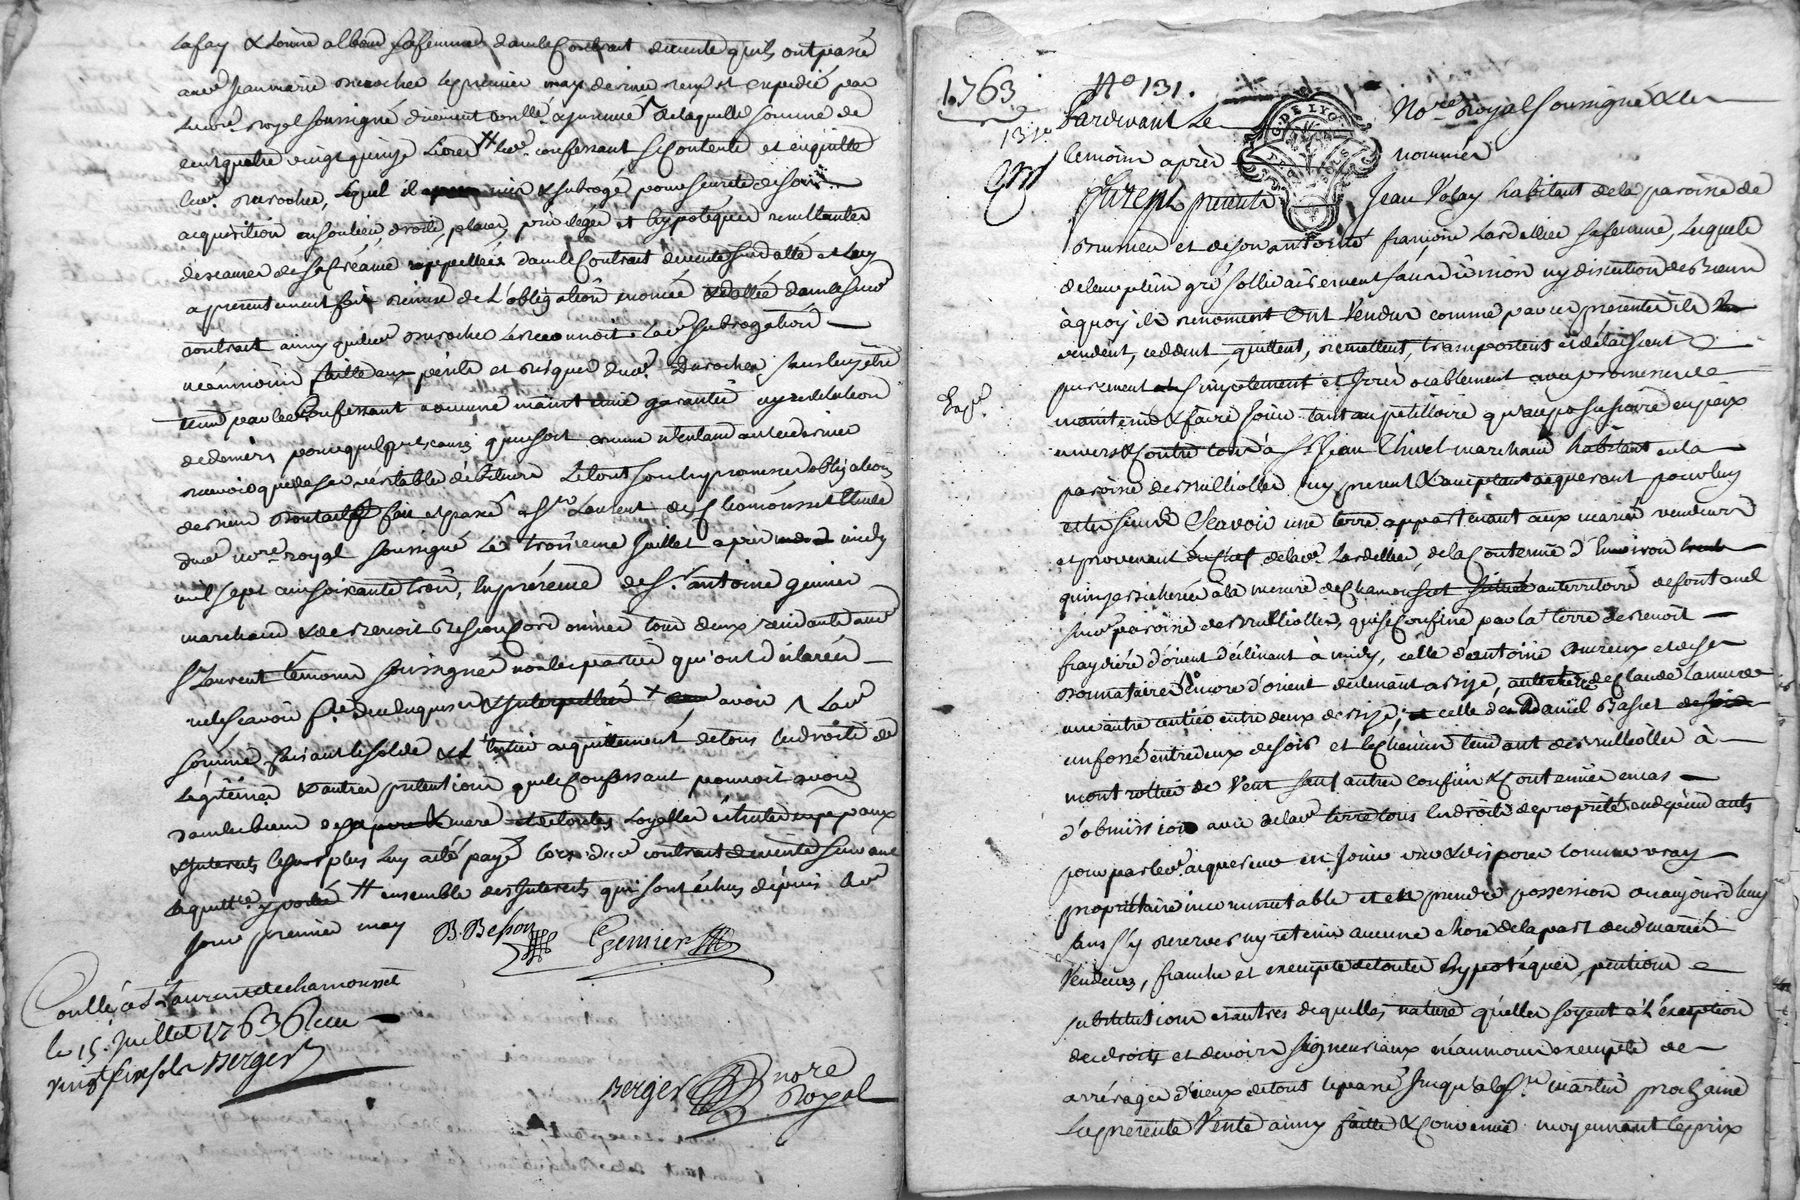 Lafay & Louise alban sa femme dans le Contrat de vente qu'ils ont passé
aud. Jean marie Durochee le premier may dernier receu et expedié par
Led. royal soussigné duement conllé, a promis de laquelle somme de
cent quatre vingt quinze Livres # led. confessant se contente et en quitte
led. Durochee, lequel il mis & subrogé pour seureté de son
acquisition en son lieu, droits, places, privileges et hypotéques resultantes
de seance de sa Créance rappellées dans le Contrat de vente susdatté et luy
a presentement fait remise de L'obligation énoncée & dattée dans le sud.
contrait ainsy que led. Durochee le reconnoit. Lad. subrogation
néanmoins faitte aux périls et risques dud. Durochee, sans luy être
tenu par le Confessant aucune maintenue garantie ny restitution
de deniers pour quelque cause que ce soit comme n'entendant au dernier
recevoir que de ses véritables débiteurs Letout sous les promesses obligations
de biens fait et passé a St Laurent de Chamousset Etude
dud. no.re royal soussigné Le troisieme Juillet après midy
mil sept cent soixante trois, En présence de S. antoine genier
marchand & de Benoit Besson Cordonnier tous deux residants aud.
St Laurent témoins soussignés non les parties qui ont déclaré
ne le scavoir f.e de ce enquises & Interpellées + avoir Lad.
somme faisant le solde & L'entier acquittement de tous les droits de
Légitime & autres prétentions que le Confessant pouvoit avoir
dans les biens de ses pere & mere et de toutes Loyalles
& Interets le surplus luy a été payé lors dud. contrait de vente suivant
la quitt.ce y portée # ensemble des Interets qui sont échus dépuis led.
jour premier may B. Besson Genier
Conllé a St Laurent de chamousset
le 15 Juillet 1763 Receu
vingt six sols Berger
Berger nore
Royal
1763 No 131.
131e Pardevant Le No.re Royal soussigné & les
témoins après nommés
Furent présents Jean Volay habitant de la paroisse de
Brussieu et de son autorité françoise Lardellier sa femme, lesquels
de leur plein gré sollidairement sans division ny discution de biens
à quoy ils renoncent Ont Vendu comme par ces presentes ils
vendent, ceddent, quittent, remettent, transportent et délaissent
purement & simplement et Irrévocablement avec promesse de
Exp.e maintenir & faire jouir tant au pétitoire qu'au possessoire en paix
envers & Contre tous à S. Jean Thivel marchand habitant en la
paroisse de Brulliolles icy present & acceptant acquerant pour luy
et les siens Scavoir une terre appartenant aux mariés vendeurs
et provenant du chef de lad. Lardellier, de la Contenue d'Environ
quinze bicherées a la mesure de Chamousset située au territoire de fontanel
sud. paroisse de Brulliolles, qui se Confine par la terre de Benoit
fraydière d'orient déclinant à midy, celle d'antoine Bureux et de ses
Donnataires Encore d'orient declinant a bize, autre terre de Claude Lanwde
une autre entiée entre deux de bize; et celle de Daniel Basset
un fossé entre deux de soir et le Chemin tendant de Brulliolles à
mont rottier de vent sauf autres confins & Contenues en cas
d'obmission avec de lad. terre tous les droits de proprieté en dépendants
pour par led. acquereur en Jouir user & disposer comme vray
propriétaire incommutable et en prendre possession aujourd'huy
sans s'y reserver ny retenir aucune chose de la part desd. mariés
Vendeurs, franche et exempte de toutes hypotéques, pentions
substitutions et autres de quelles nature qu'elles soyent a L'exception
des droits et devoirs seigneuriaux néanmoins exempte de
arrérages d'iceux de tout le passé Jusqu'a la St martin prochaine
La presente Vente ainsy faitte & Convenue moyennant le prix